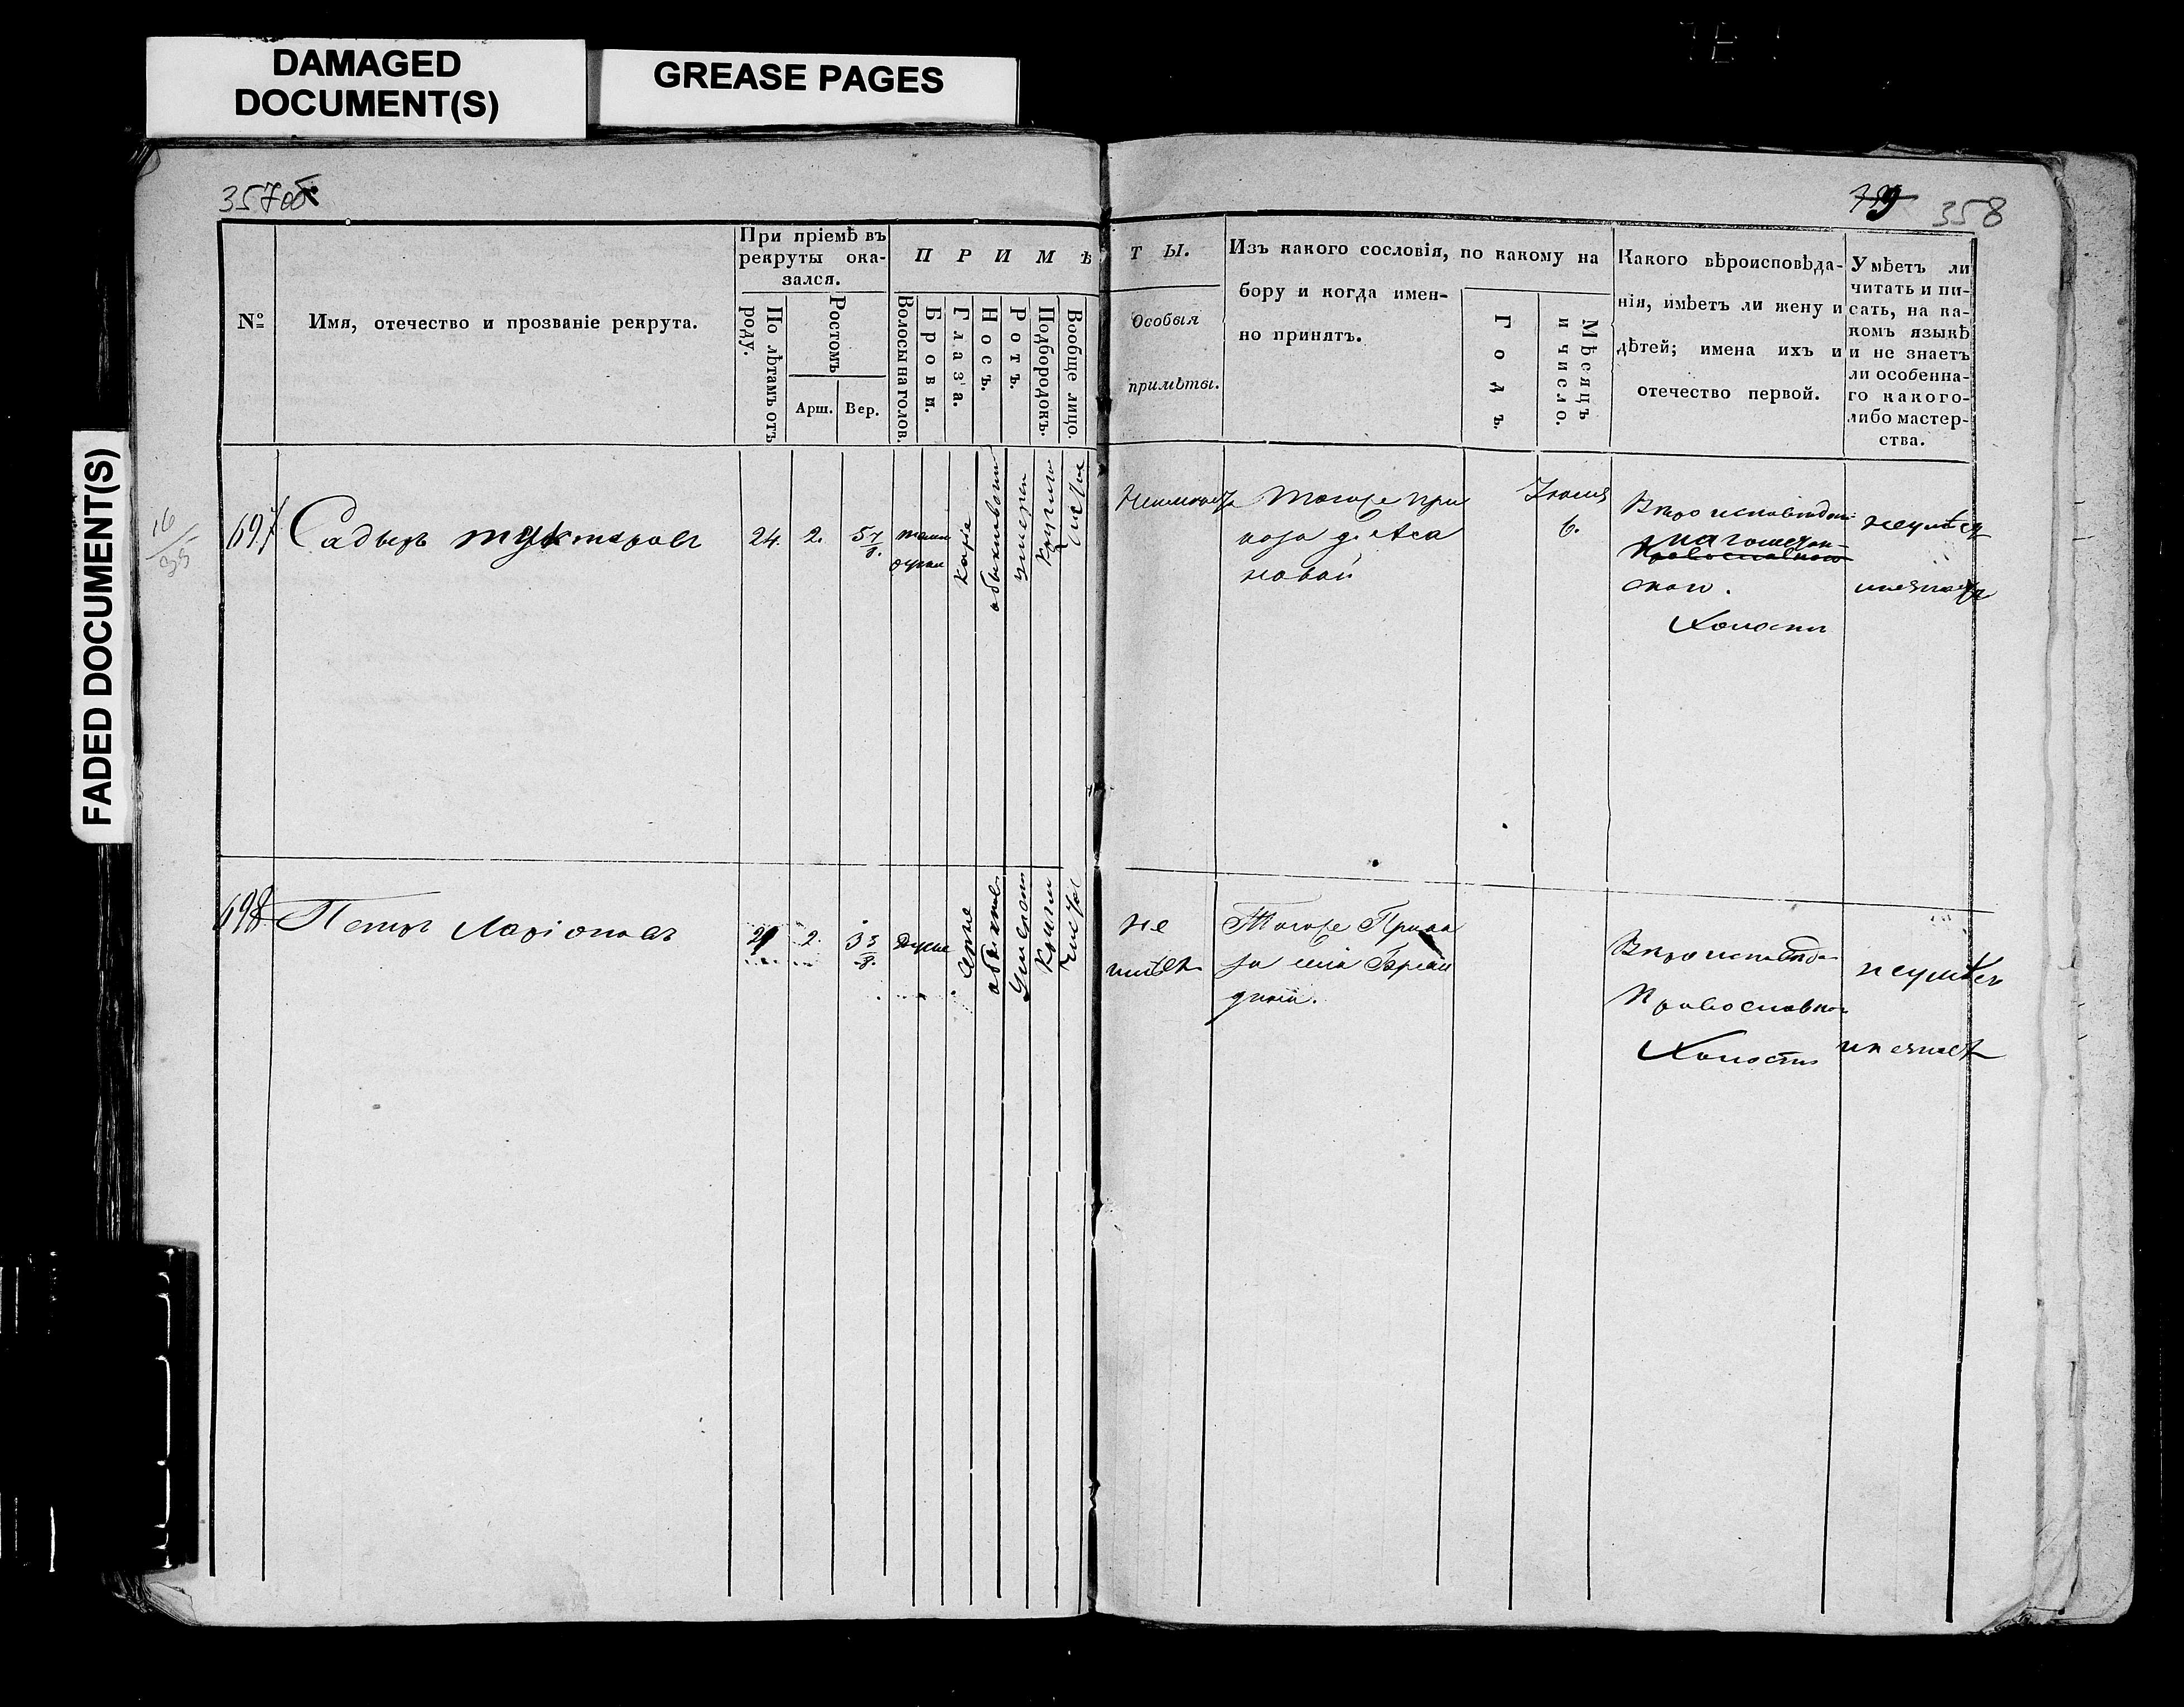 DAMAGED
DOCUMENT(S)
GREASE PAGES
FADED DOCUMENT(S)
357об
358
№
Имя, отечество и прозваніе рекрута.
При пріемѣ въ
рекруты ока-
зался.
По лѣтамъ отъ
роду.
Ростомъ
Арш. Вер.
ПРИМѢ
Волосы на голов.
Брови.
Глаза.
Носъ.
Ротъ.
Подбородокъ.
Вообще лицо.
ТЫ.
Особыя
примѣты.
Изъ какого сословія, по какому на
бору и когда имен-
но принятъ.
Годъ.
Мѣсяцъ
и число.
Какого вѣроисповѣда-
нія, имѣетъ ли жену и
дѣтей; имена ихъ и
отечество первой.
Умѣетъ ли
читать и пи-
сать, на ка-
комъ языкѣ
и не знаетъ
ли особенна-
го какого-
либо мастер-
ства.
16
35
697
Садыръ Туктаровъ
24. 2. 5 7/8.
темно
русые
каріе
обыкновен
умерен
кругло
чистое
Неимеетъ
Тогоже при
каза д.
новой
Іюня
6.
Вѣроисповѣдан
магометан
Православного
скаго.
Холостъ
неумѣет
инезнаетъ
698
Петръ Ларіоновъ
2. 3 3/8.
Русые
серые
обыкнов.
Умерен
Кругл
чистое
не
имѣет
Тогоже Прика
за села
Вѣроисповѣд
Православн
Холостъ
неумѣет
инезнает